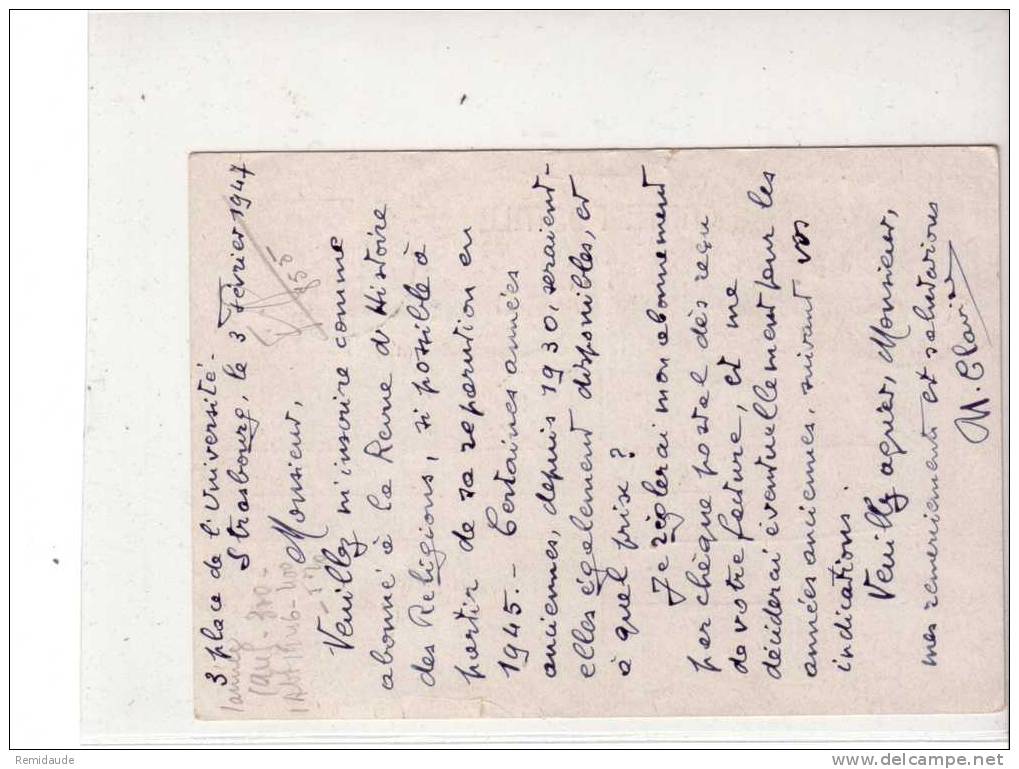 3 place de l'Université.
Strasbourg, le 3 Février 1947
Monsieur,
Veuillez m'inscrire comme
abonné à la Revue d'Histoire
des Religions, si possible à
partir de sa reparution en
1945. - Certaines années
anciennes, depuis 1930, seraient-
elles également disponibles, et
à quel prix ?
Je règlerai mon abonnement
par chèque postal dès reçu
de votre facture, et me
déciderai éventuellement pour les
années anciennes, suivant vos
indications.
Veuillez agréer, Monsieur,
mes remerciements et salutations
Remidaude
delcampe.net